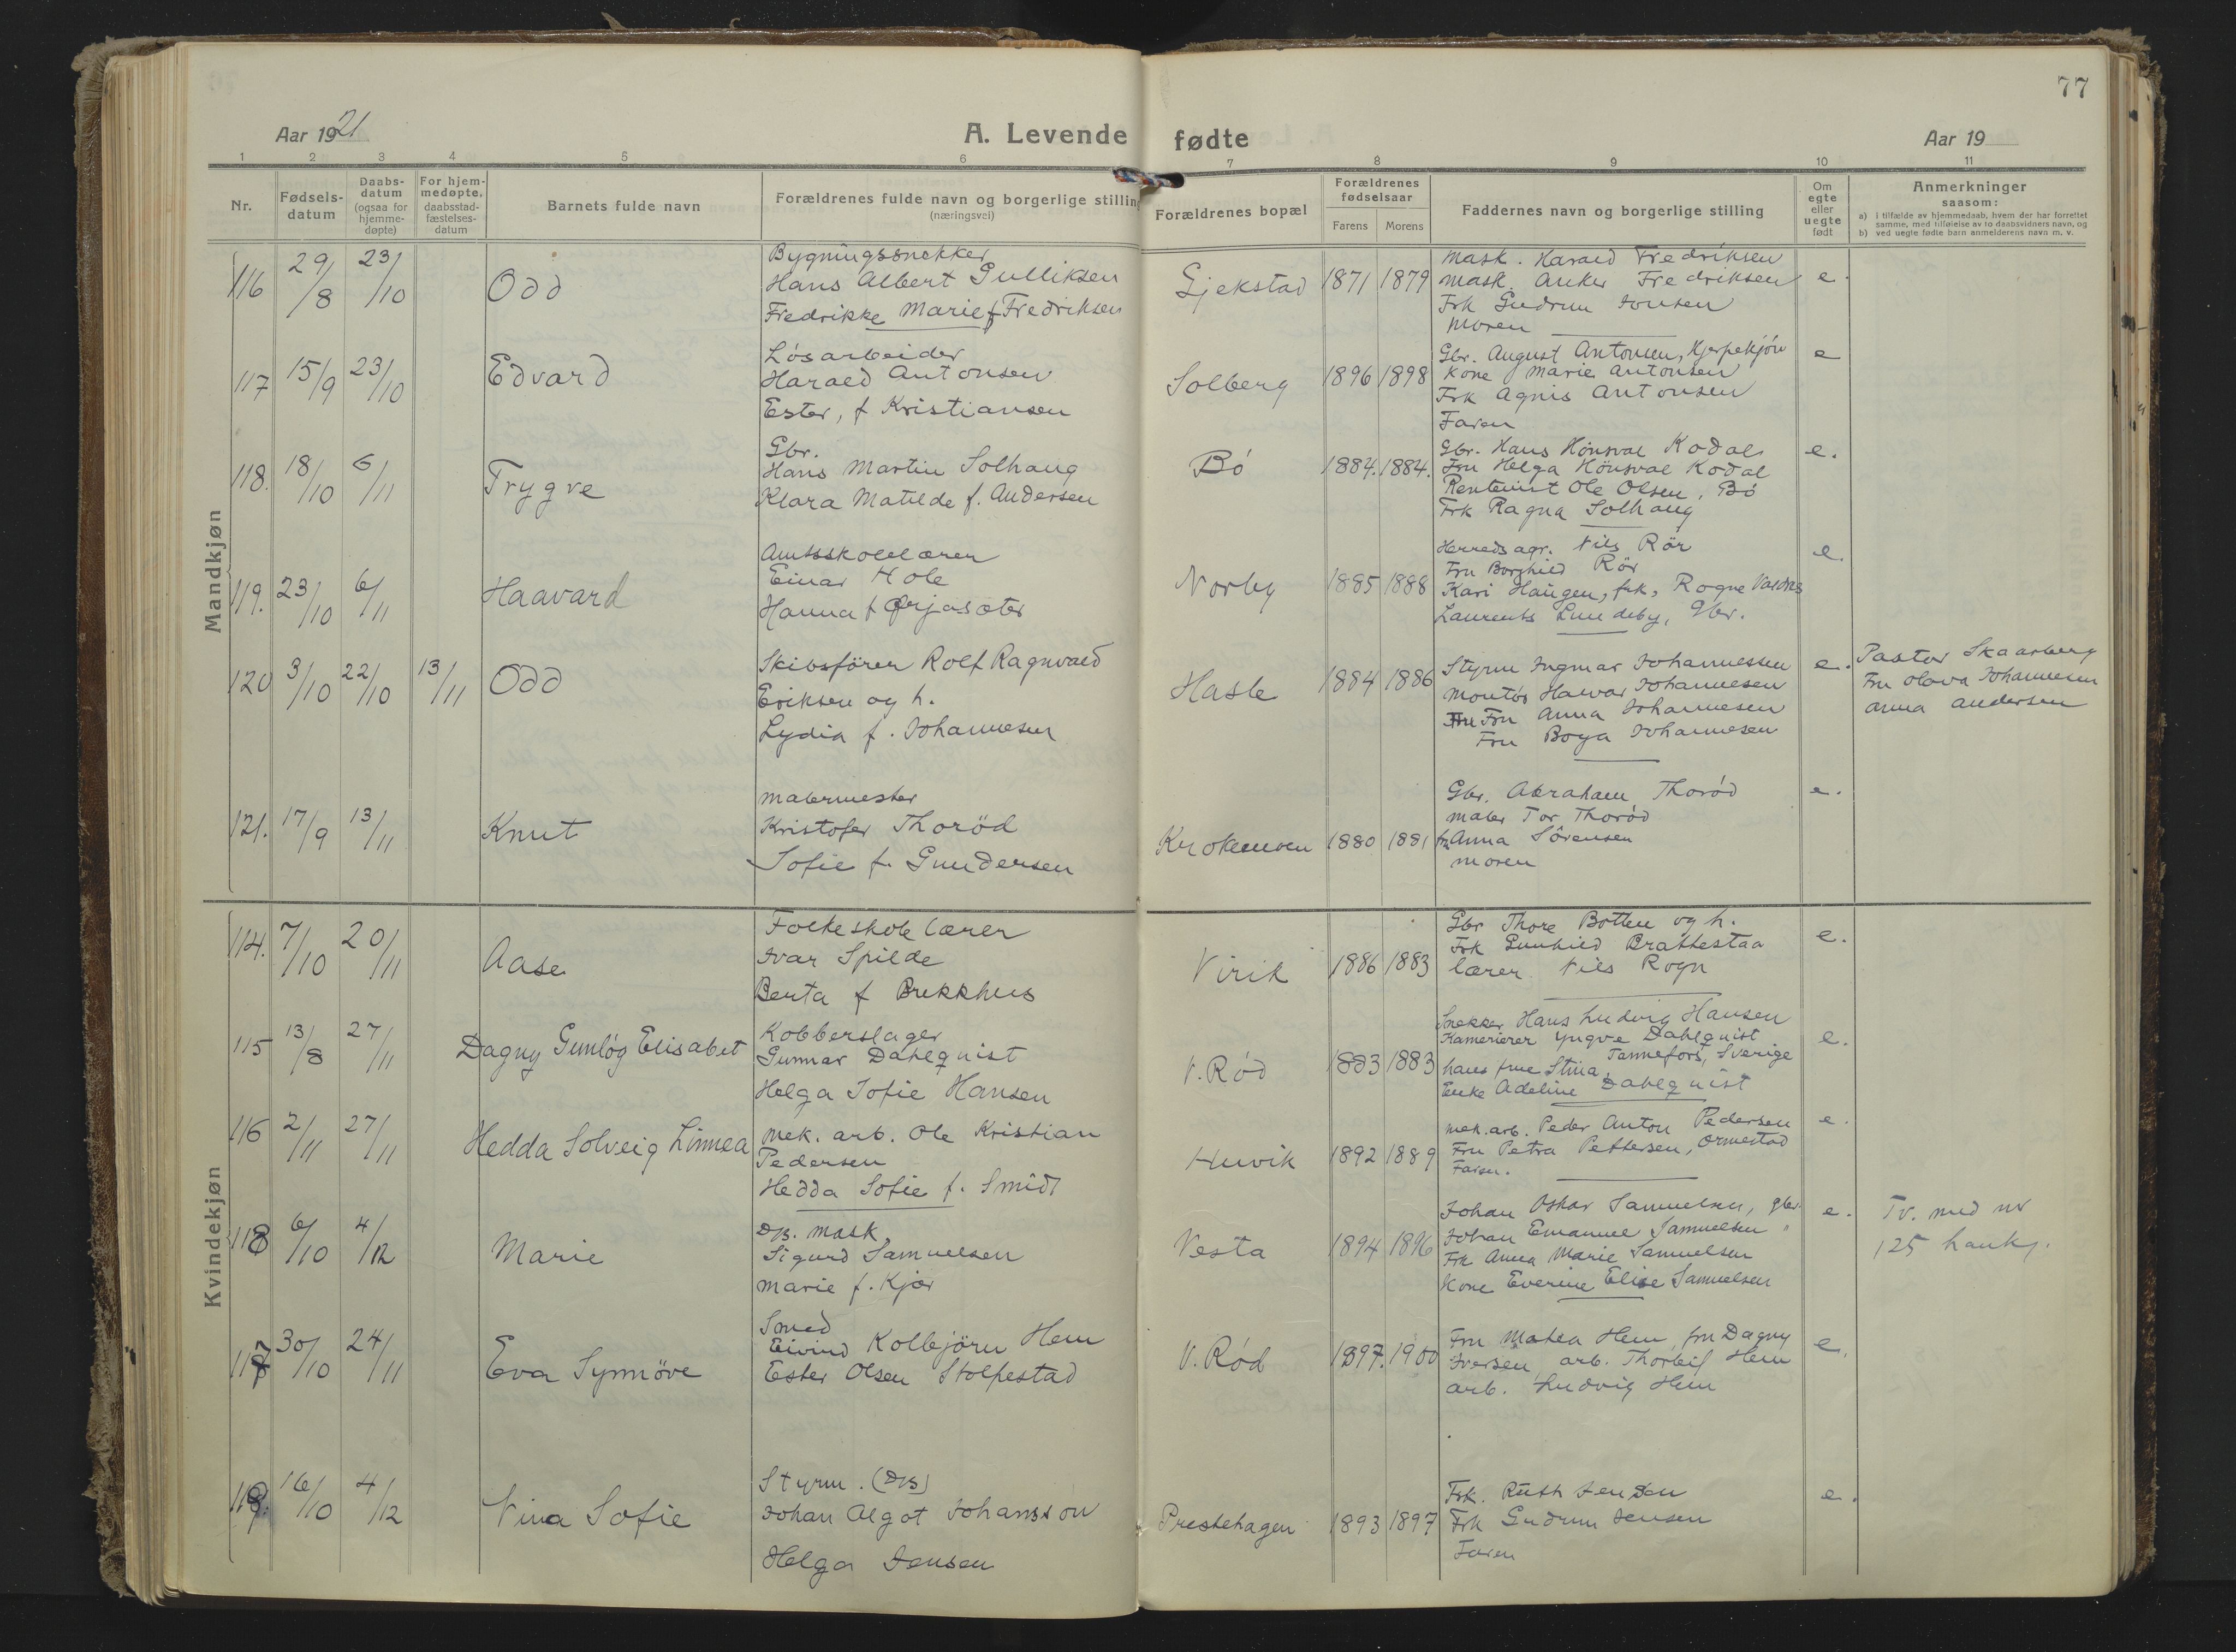 77
Aar 1921
A. Levende fødte
Aar 19
1 2 3 4 5 6 7 8 9 10 11
Nr.
Fødsels-
datum
Daabs-
datum
(ogsaa for
hjemme-
døpte)
For hjem-
medøpte,
daabsstad-
fæstelses-
datum
Barnets fulde navn
Forældrenes fulde navn og borgerlige stilling
(næringsvei)
Forældrenes bopæl
Forældrenes
fødselsaar
Farens Morens
Faddernes navn og borgerlige stilling
Om
egte
eller
uegte
født
Anmerkninger
saasom:
a) i tilfælde av hjemmedaab, hvem der har forrettet
samme, med tilføielse av to daabsvidners navn, og
b) ved uegte fødte barn anmelderens navn m. v.
Mandkjøn
116 29/8 23/10 Odd
Bygningssnekker
Hans Albert Gulliksen
Fredrikke Marie f Fredriksen
Gjekstad 1871 1879
Mask. Harald Fredriksen
Mask. Anker Fredriksen
Frk Gudrun Jonsen
Moren
e.
117 15/9 23/10 Edvard
Løsarbeider
Harald Antonsen
Ester, f Kristiansen
Solberg 1896 1898
Gbr. August Antonsen,
Kone Marie Antonsen
Frk Agnis Antonsen
Faren
e
118. 18/10 6/11 Trygve
Gbr.
Hans Martin Solhaug
Klara Matilde f. Andersen
Bó 1884. 1884.
Gbr. Hans Hönsval Kodal
Fru Helga Hönsval Kodal
Rentenist Ole Olsen, Bó
Frk Ragna Solhaug
e.
119. 23/10 6/11 Haavard
Amtsskolelærer
Einar Hole
Hanna f Ørjasæter
Norby 1885 1888
Herredsagr. Nils Rör
Fru Borghild Rör
Kari Haugen, frk, Rogne Valdres
Laurents Lundeby, Gbr.
e.
120 3/10 22/10 13/11 Odd
Skibsfører Rolf Ragnvald
Eriksen og h.
Lydia f. Johannesen
Hasle 1884 1886
Styrm Ingmar Johannessen
Montør Halvar Johannesen
Fru Anna Johannesen
Fru Borga Johannesen
e.
Pastor Skaarberg
Fru Olava Johannesen
Anna Andersen
121. 17/9 13/11 Knut
Malermester
Kristofer Thorød
Sofie f. Gundersen
Krokemoen 1880 1881
Gbr. Abraham Thorød
Maler Tor Thorød
fr. Anna Sörensen
Moren
e.
Kvindekjøn
114. 7/10 20/11 Aase
Folkeskolelærer
Ivar Spilde
Berta f Brekkhus
Virik 1886 1883
Gbr Thore Botten og h.
Frk Gunhild Brattestaa
lærer Nils Rogn
e.
115 13/8 27/11 Dagny Gunløg Elisabet
Kobberslager
Gunnar Dahlquist
Helga Sofie Hansen
V. Rød 1883 1883
Snekker Hans Ludvig Hansen
Kamerierer Yngve Dahlquist
hans frue Stina, Tannefors, Sverige
Enke Adeline Dahlquist
e.
116 2/11 27/11 Hedda Solveig Linnea
Mek. arb. Ole Kristian
Pedersen
Hedda Sofie f. Smidt
Huvik 1892 1889
Mek. arb. Peder Anton Pedersen
Fru Petra Pettersen, Ormestad
Faren.
e.
118 6/10 4/12 Marie
DB. Mask.
Sigurd Samuelsen
Marie f. Kjær
Vesta 1894 1896
Johan Oskar Samuelsen, gbr.
Johan Emanuel Samuelsen "
Frk Anna Marie Samuelsen
Kone Everine Elise Samuelsen
e.
Tv. med nr
125 hankj.
117 30/10 24/11 Eva Synnöve
Smed
Eivind Kolbjörn Hem
Ester Olsen Stolpestad
V. Rød 1897. 1900
Fru Matea Hem, fru Dagny
Iversen, arb. Thorleif Hem
arb. Ludvig Hem
e.
119. 16/10 4/12 Nina Sofie
Styrm. (DB)
Johan Algot Johansson
Helga Jensen
Prestehagen 1893 1897
Frk. Ruth Jensen
Frk Gudrun Jensen
Faren
e.